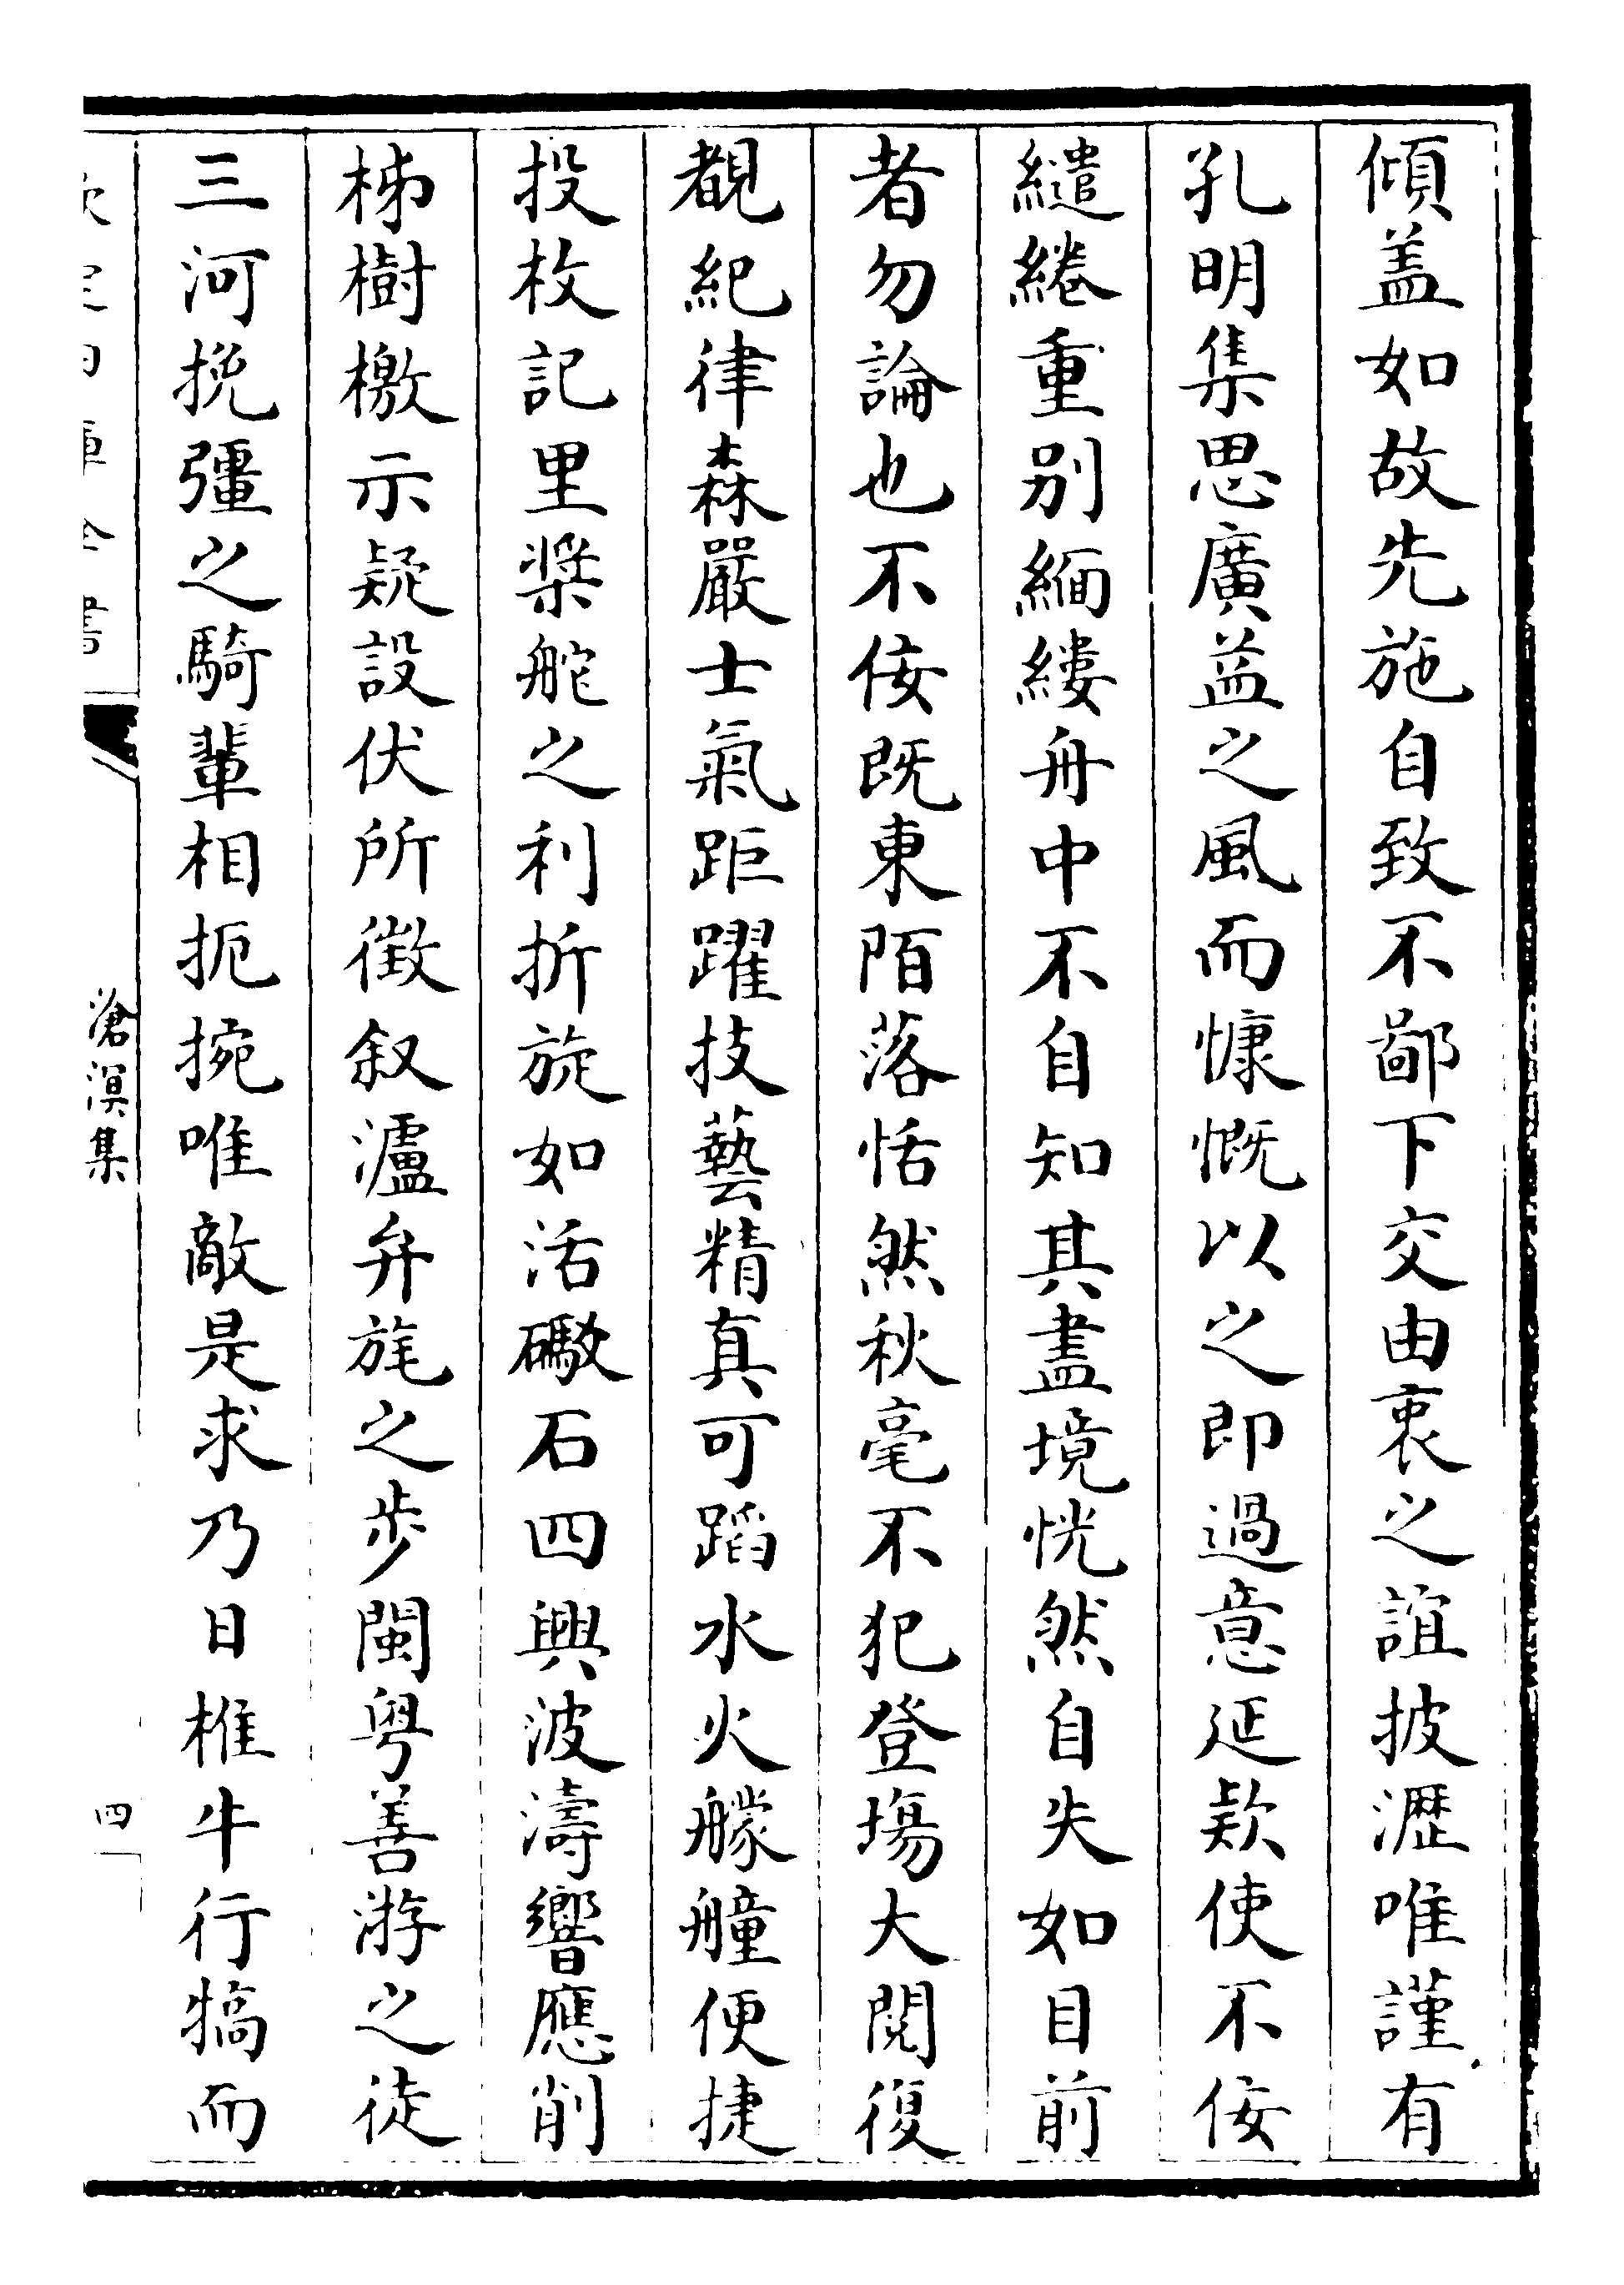 傾盖如故先施自致不鄙下交由衷之誼披瀝唯謹有
孔明集思廣益之風而慷慨以之即過意延欵使不佞
繾綣重别緬縷舟中不自知其盡境恍然自失如目前
者勿論也不佞既東陌落恬然秋毫不犯登塲大閱復
覩紀律森嚴士氣距躍技藝精真可蹈水火艨艟便捷
投枚記里槳舵之利折旋如活礮石四興波濤響應削
梯樹檄示疑設伏所徴叙瀘弁旄之步閩粤善游之徒
三河挽彊之騎輩相扼捥唯敵是求乃日椎牛行犒而
欽定四庫全書
滄溟集
四